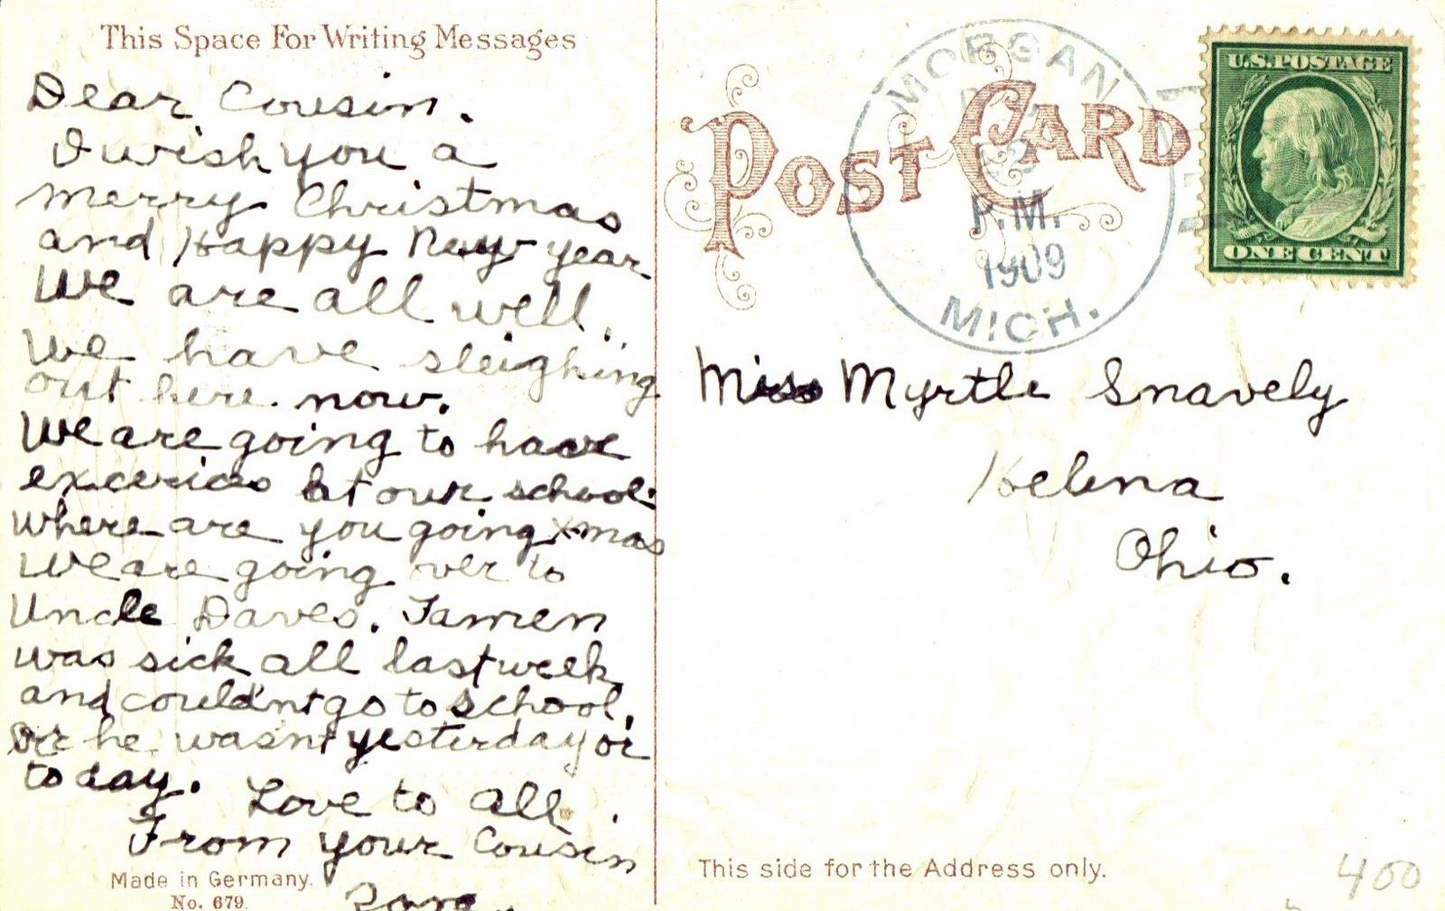 This Space For Writing Messages
Dear Cousin.
I wish you a
merry Christmas
and Happy New year
We are all well.
We have sleighing
out here. now.
We are going to have
excerices at our school.
Where are you going xmas
We are going over to
Uncle Daves.
was sick all last week
and couldn't go to school.
he wasn't yesterday or
to day.
Love to all.
From your Cousin
Made in Germany.
No. 679.
POST CARD
MORGAN
P.M.
1909
MICH.
U.S. POSTAGE
ONE CENT
Miss Myrtle Snavely
Helena
Ohio.
This side for the Address only.
400